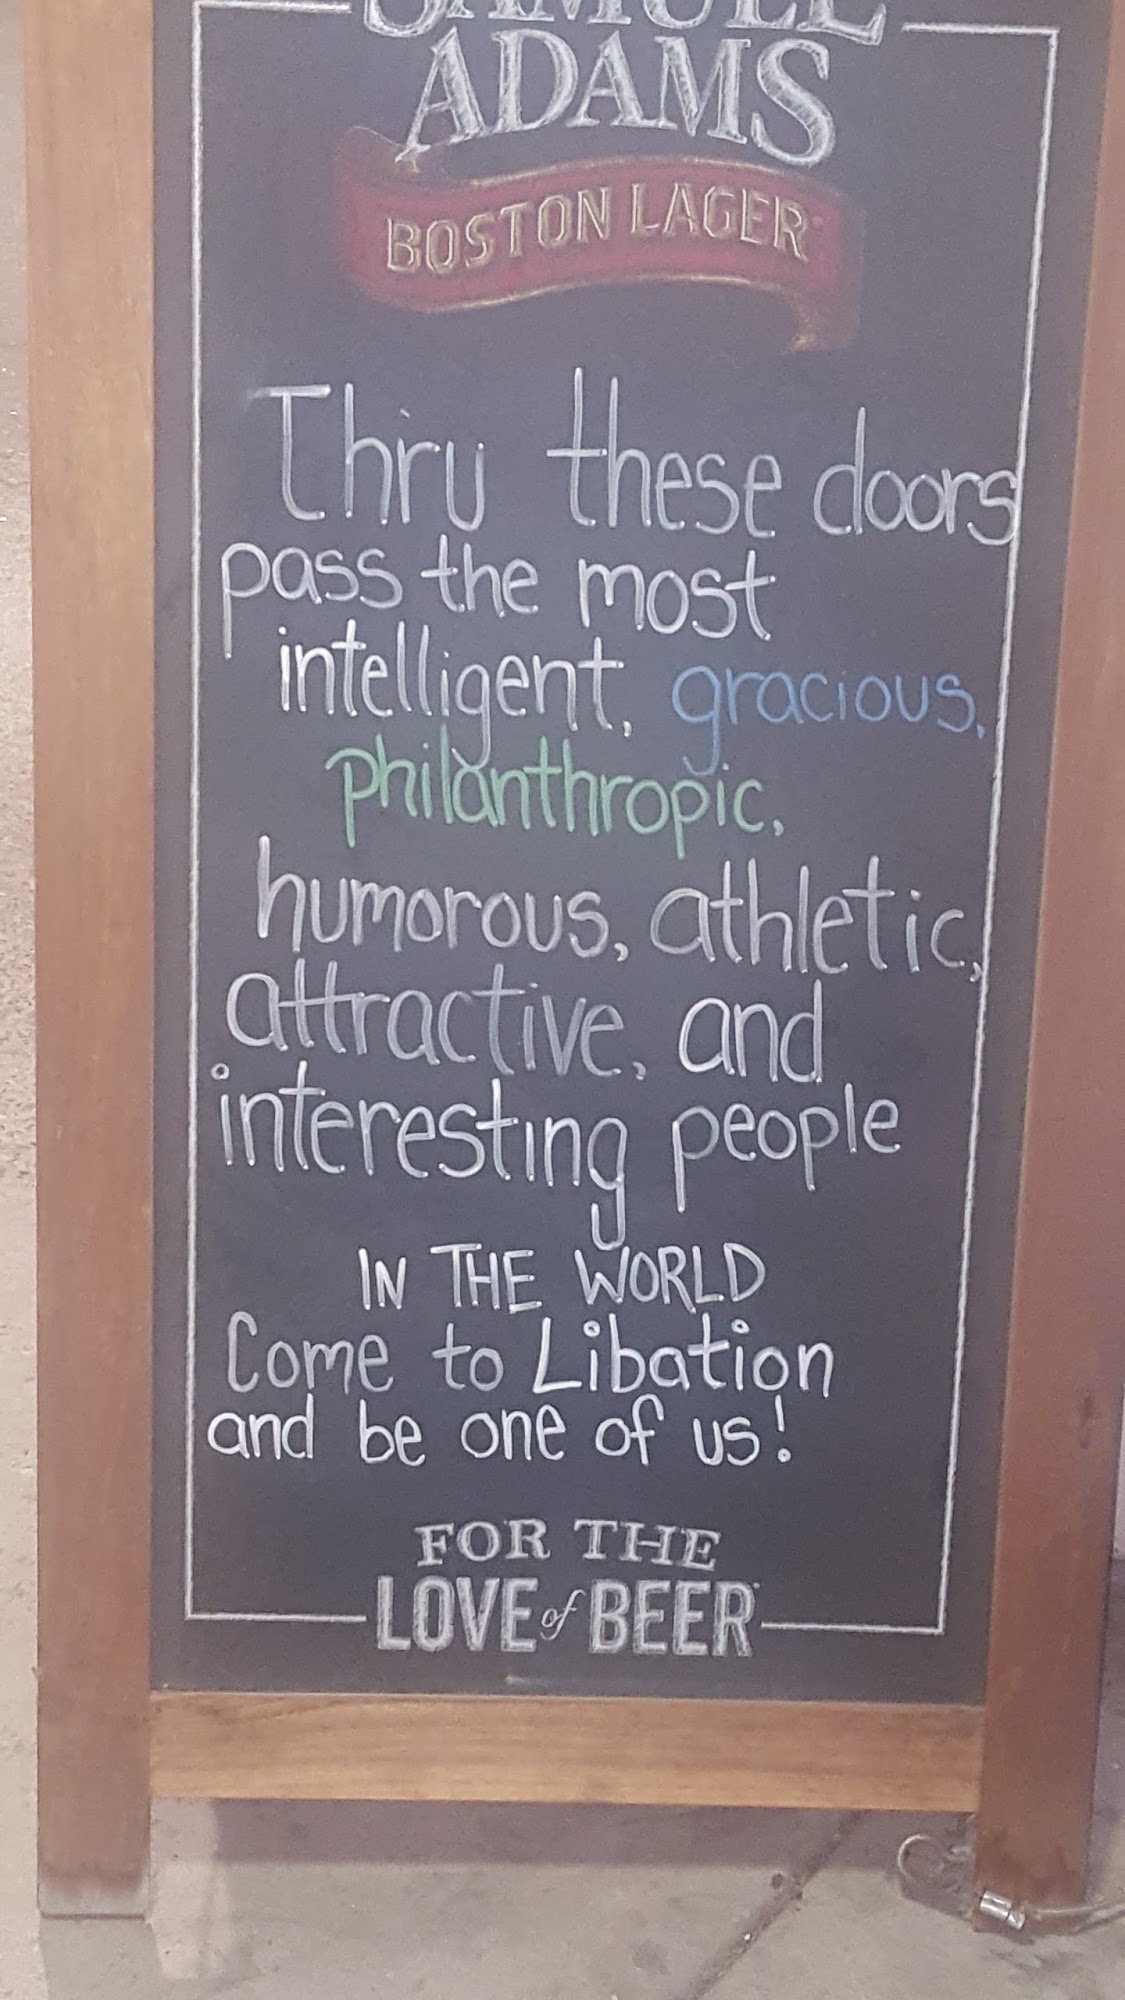 SAMUEL
ADAMS
BOSTON LAGER
Thru these doors
pass the most
intelligent, gracious,
philanthropic,
humorous, athletic,
attractive, and
interesting people
IN THE WORLD
Come to Libation
and be one of us!
FOR THE
LOVE of BEER